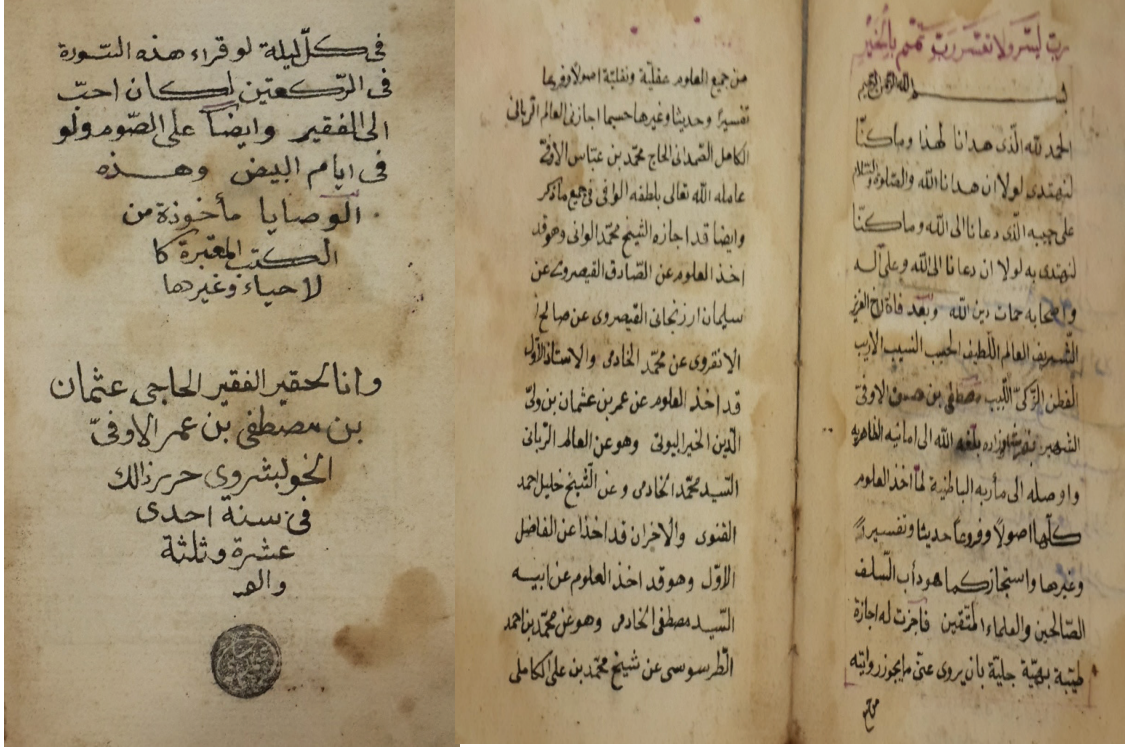 رب يسر ولا تعسر رب تمم بالخير
بسم الله الرحمن الرحيم
الحمد لله الّذى هدانا لهذا وماكنّا
لنهتدى لولا ان هدانا الله والصّلوة والسّلام
على حبيبه الّذى دعانا الى الله وماكنّا
لنهتدى به لولا ان دعانا الى الله وعلى آله
واصحابه حمات دين الله وبعد فان اخ العزيز
الشّريف العالم اللّطيف الحسيب النسيب الاريب
الفطن الزّكىّ اللّبيب مصطفى بن حسن الاوفىّ
الشهير بلّغه الله الى امانيه الظاهرية
واوصله الى مأربه الباطنية لمّا اخذ العلوم
كلّها اصولا وفروعا حديثا وتفسيرا
وغيرها واستجاز كما هو دأب السّلف
الصّالحين والعلماء المتّقين فاجزت له اجازة
طيّبة بهيّة جليّة بان يروى عنّى مايجوز روايته
من جميع العلوم عقليّة ونقليّة اصولا وفروعا
تفسيرا وحديثا وغيرها حسبما اجازنى العالم الربانى
الكامل الصّمدانى الحاج محمّد بن عبّاس الاوفىّ
عامله الله تعالى بلطفه الوافى فى جميع ماذكر
وايضا قد اجازه الشّيخ محمّد الوانى وهو قد
اخذ العلوم عن الصّادق القيصروى عن
سليمان ارزنجانى القيصروى عن صالح
الانقروى عن محمّد الخادمى والاستاذ الاوّل
قد اخذ العلوم عن عمر بن عثمان بن ولىّ
الدّين الخيرابولى وهو عن العالم الرّبانى
السّيد محمّد الخادمى وعن الشّيخ خليل احمد
القنوى والاخران قد اخذا عن الفاضل
الاوّل وهو قد اخذ العلوم عن ابيه
السّيد مصطفى الخادمى وهو عن محمّد بن احمد
الطّرسوسى عن شيخ محمّد بن على الكاملى
فى كلّ ليلة لو قراء هذه السّورة
فى الرّكعتين لكان احبّ
الى الفقير وايضا على الصّوم ولو
فى ايام البيض وهذه
الوصايا مأخوذة من
الكتب المعتبرة كا
لاحياء وغيرها
وانا الحقير الفقير الحاجى عثمان
بن مصطفى بن عمر الاوفىّ
حرر ذالك
فى سنة احدى
عشرة وثلثة
والف